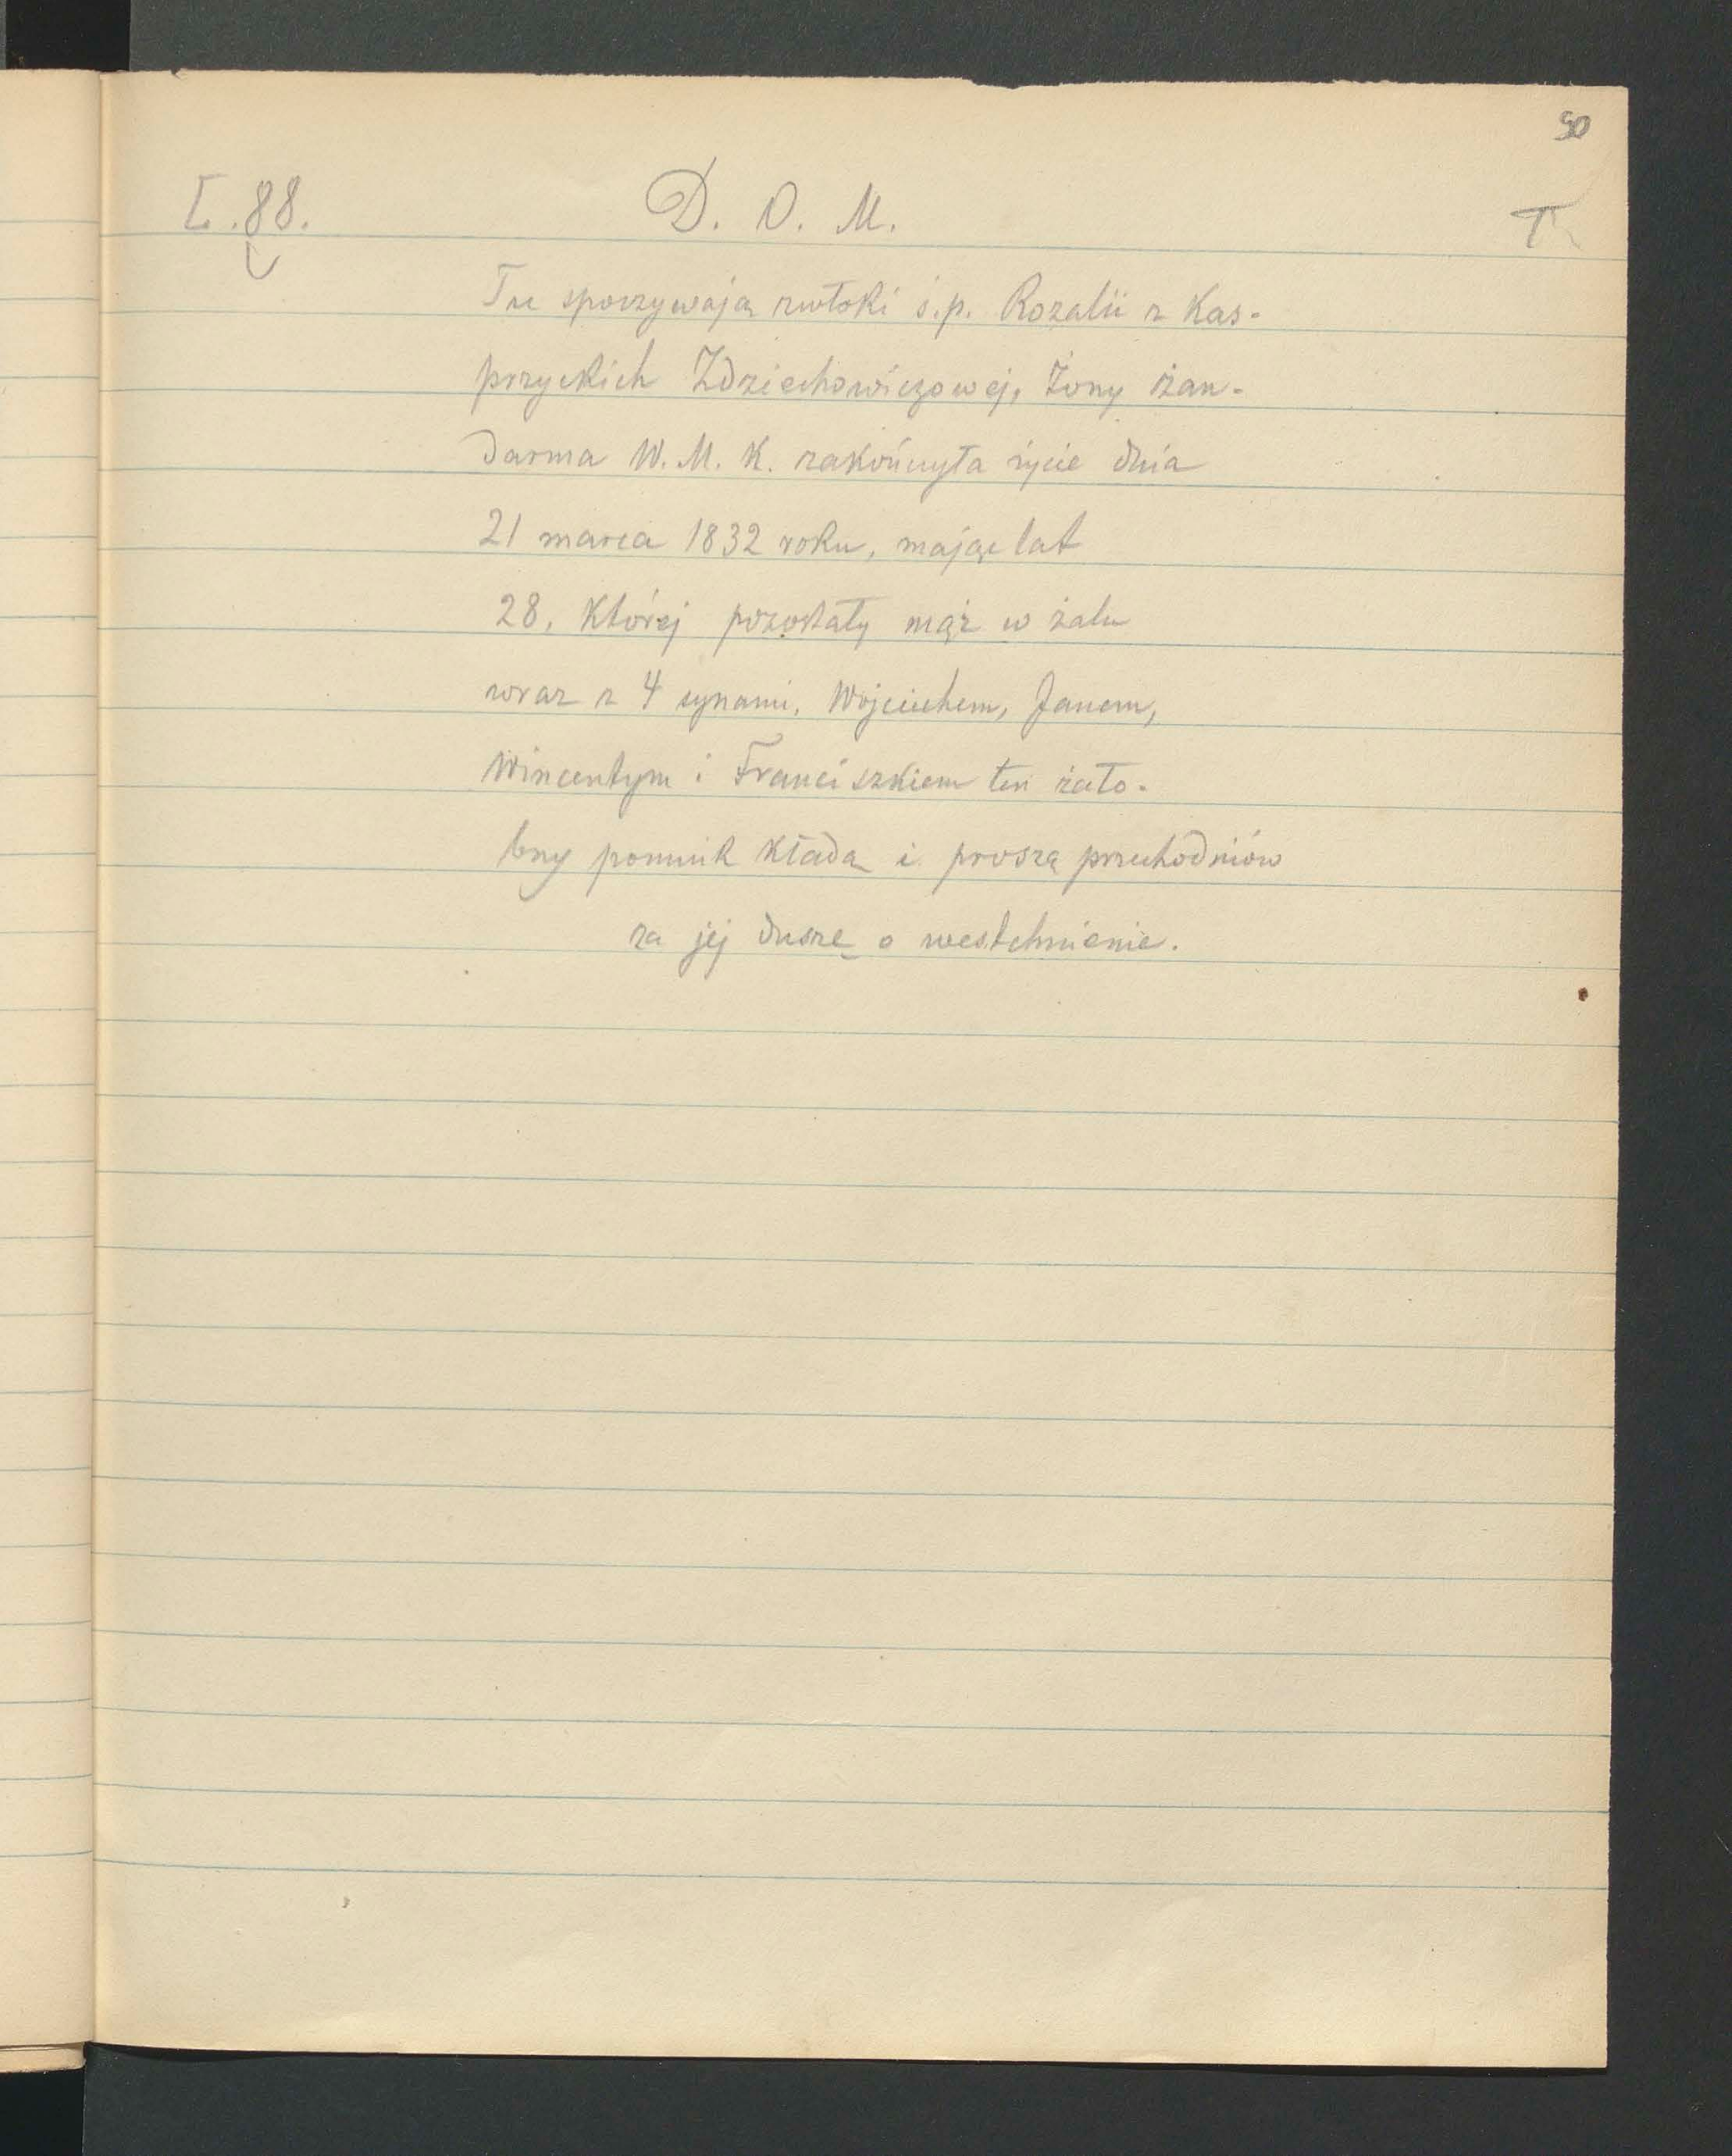 50
L. 88. D. O. M. T
Tu spoczywają zwłoki ś.p. Rozalii z Kas-
przyckich Zdziechowiczowej, żony żan-
darma W. M. K. zakończyła życie dnia
21 marca 1832 roku, mając lat
28, której pozostały mąż w żalu
wraz z 4 synami, Wojciechem, Janem,
Wincentym i Franciszkiem ten żało-
bny pomnik kładą i proszą przechodniów
za jej duszę o westchnienie.